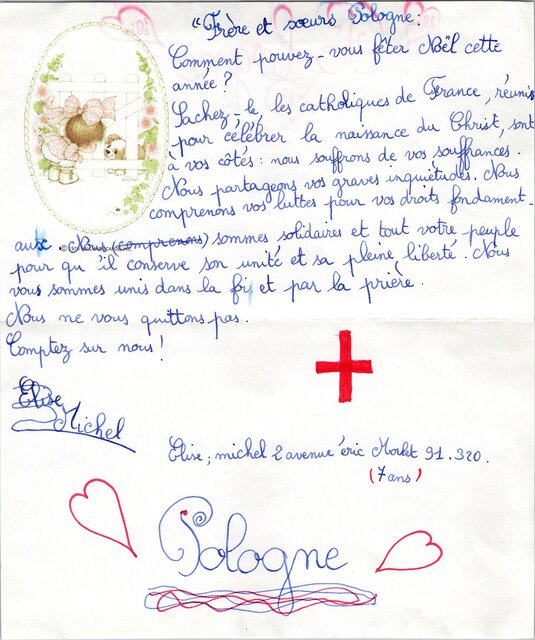 "Frère et sœurs Pologne :
Comment pouvez-vous fêter Noël cette
année ?
Sachez-le, les catholiques de France, réunis
pour célébrer la naissance du Christ, sont
à vos côtés : nous souffrons de vos souffrances.
Nous partageons vos graves inquiétudes. Nous
comprenons vos luttes pour vos droits fondament-
aux. Nous (comprenons) sommes solidaires et tout votre peuple
pour qu'il conserve son unité et sa pleine liberté. Nous
vous sommes unis dans la foi et par la prière.
Nous ne vous quittons pas.
Comptez sur nous !
Elise
Michel
Elise ; michel 2 avenue éric Morlet 91.320.
(7 ans)
Pologne